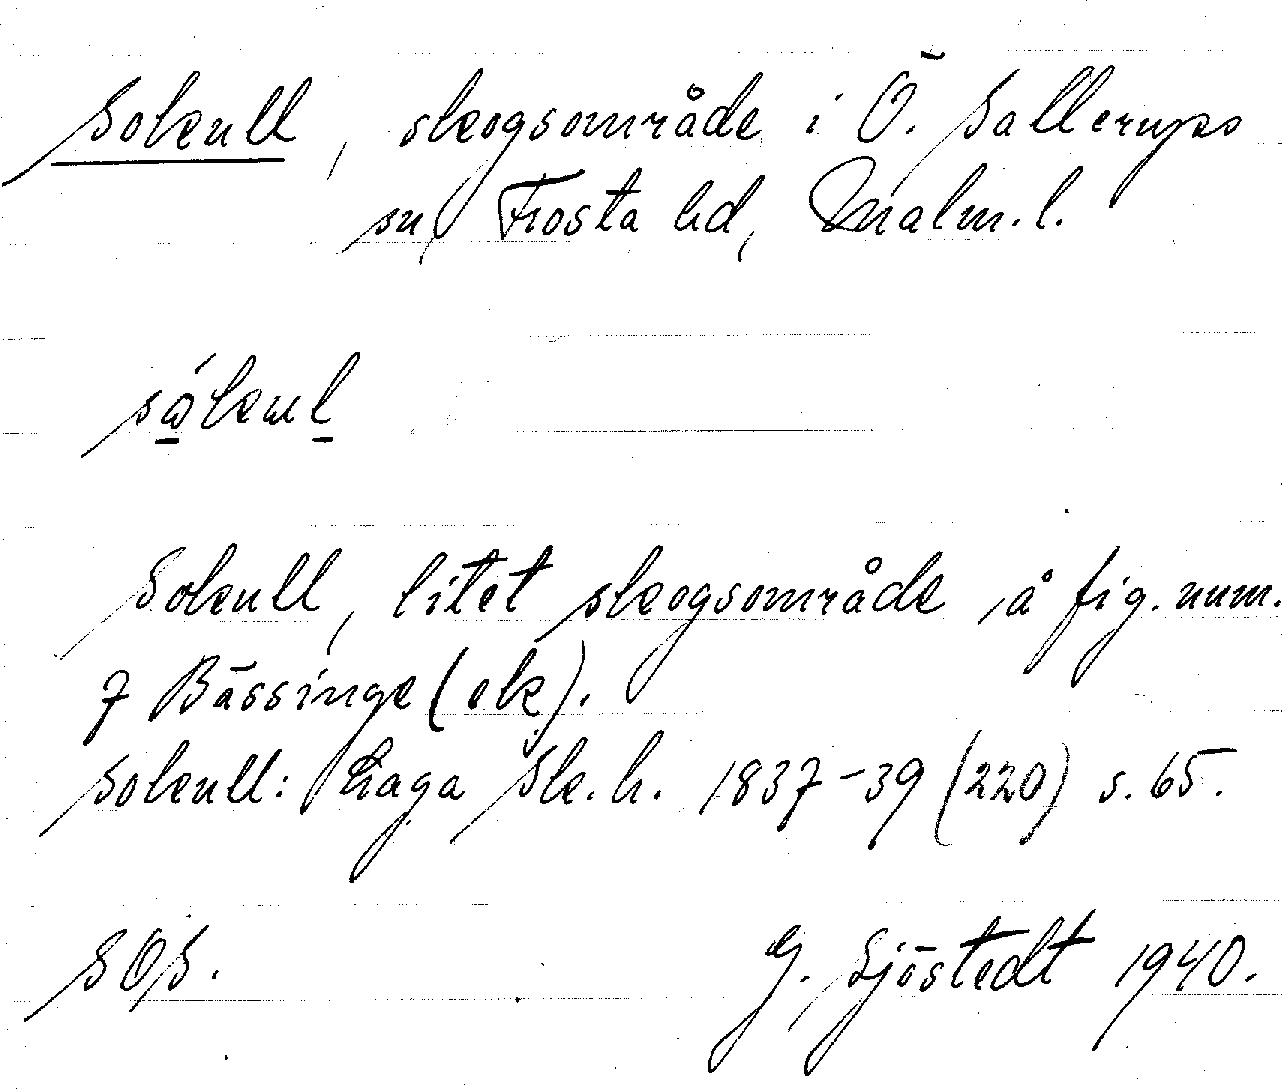 Sokull, skogsområde i Ö. Sallerups
sn, Frosta hd, Malm. l.
såkul
Sokull, litet skogsområde å fig. num.
7 Bässinge (ek).
Sokull: Laga Sk. h. 1837-39 (220) s. 65.
SOS.
G. Sjöstedt 1940.